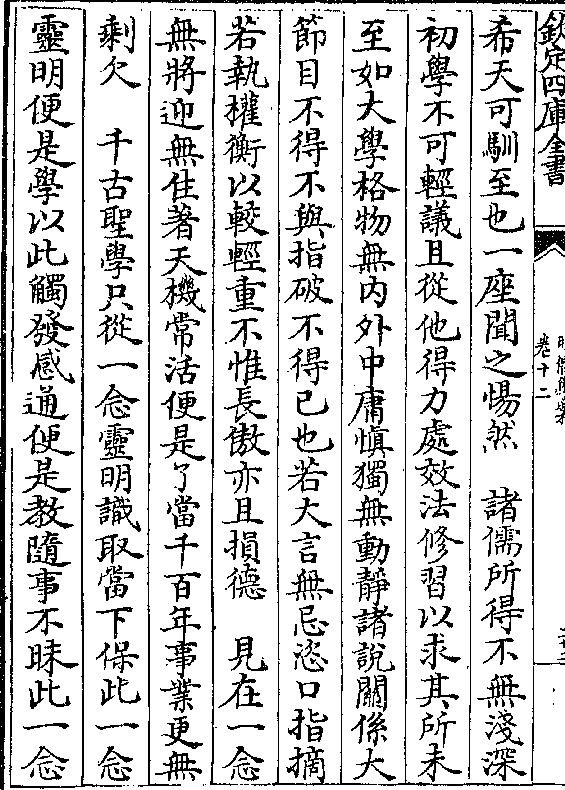 欽定四庫全書
卷十二
希天可馴至也一座聞之惕然　諸儒所得不無淺深
初學不可輕議且從他得力處效法修習以求其所未
至如大學格物無内外中庸慎獨無動靜諸說關係大
節目不得不與指破不得已也若大言無忌恣口指摘
若執權衡以較輕重不惟長傲亦且損德　見在一念
無將迎無住著天機常活便是了當千百年事業更無
剩欠　千古聖學只從一念靈明識取當下保此一念
靈明便是學以此觸發感通便是教隨事不昧此一念